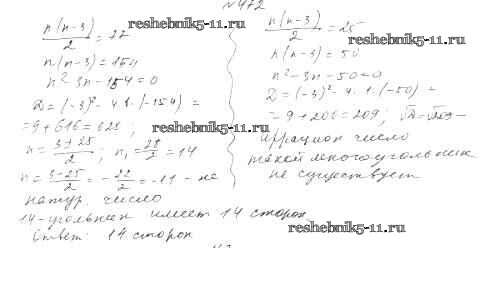 № 472
n(n-3)/2 = 77
n(n-3) = 154
n² - 3n - 154 = 0
D = (-3)² - 4·1·(-154) =
= 9 + 616 = 625 ;
n = (3 ± 25)/2 ; n₁ = 28/2 = 14
n = (3 - 25)/2 = - 22/2 = -11 - не
натур. число
14-угольник имеет 14 сторон
Ответ: 14 сторон
n(n-3)/2 = 25
n(n-3) = 50
n² - 3n - 50 = 0
D = (-3)² - 4·1·(-50) =
= 9 + 200 = 209 ; √D = √209 -
иррацион число
такой многоугольник
не существует
reshebnik5-11.ru
reshebnik5-11.ru
reshebnik5-11.ru
reshebnik5-11.ru